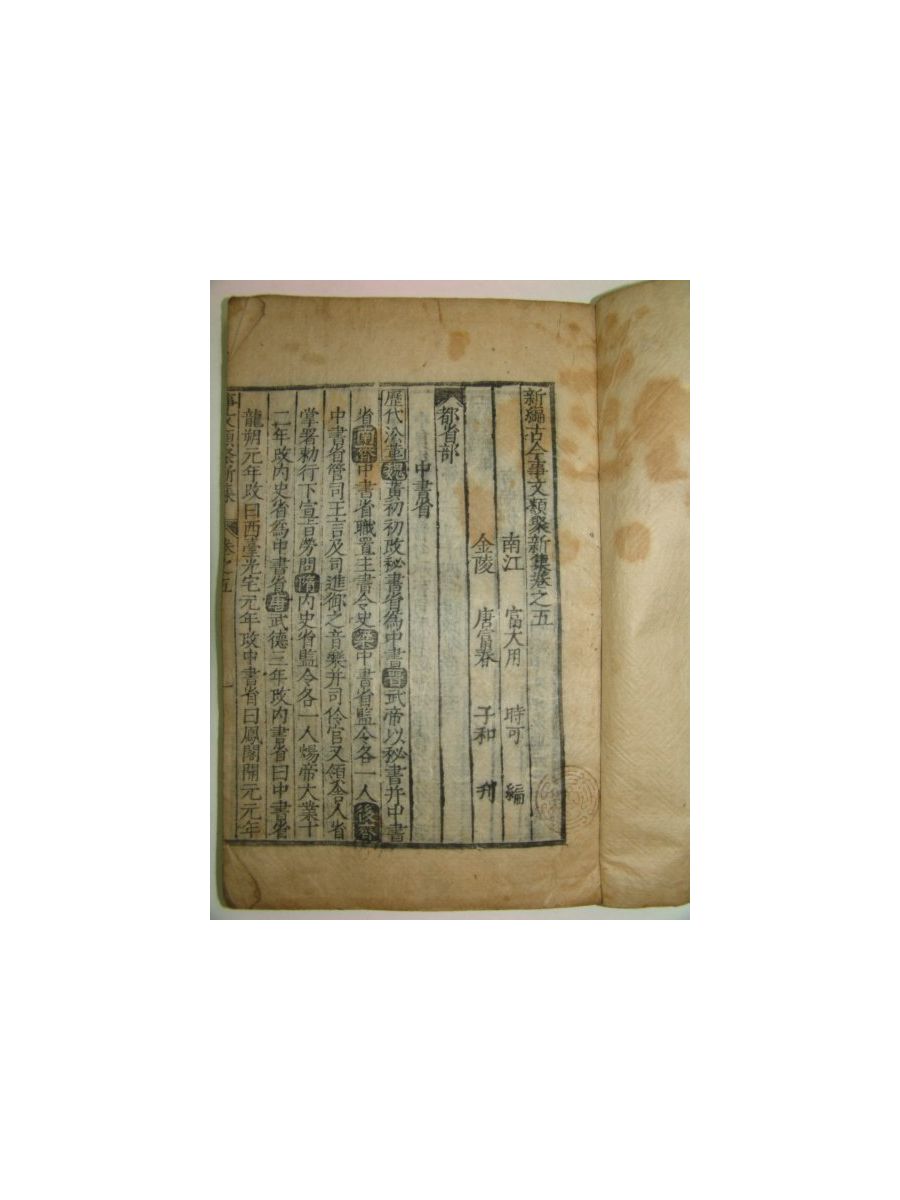 新編古今事文類聚新集卷之五
南江 富大用 時可 編
金陵 唐富春 子和 刊
都省部
中書省
歷代沿革魏黃初初改秘書省為中書晉武帝以秘書并中書
省南齊中書省職置主書令史梁中書省監令各一人後齊
中書省管司王言及司進御之音樂并司伶官又領舍人省
掌署勅行下宣旨勞問隋內史省監令各一人煬帝大業十
二年改內史省為中書省唐武德三年改內書省曰中書省
龍朔元年改曰西臺光宅元年改中書省曰鳳閣開元元年
事文類聚新集 卷之五 一